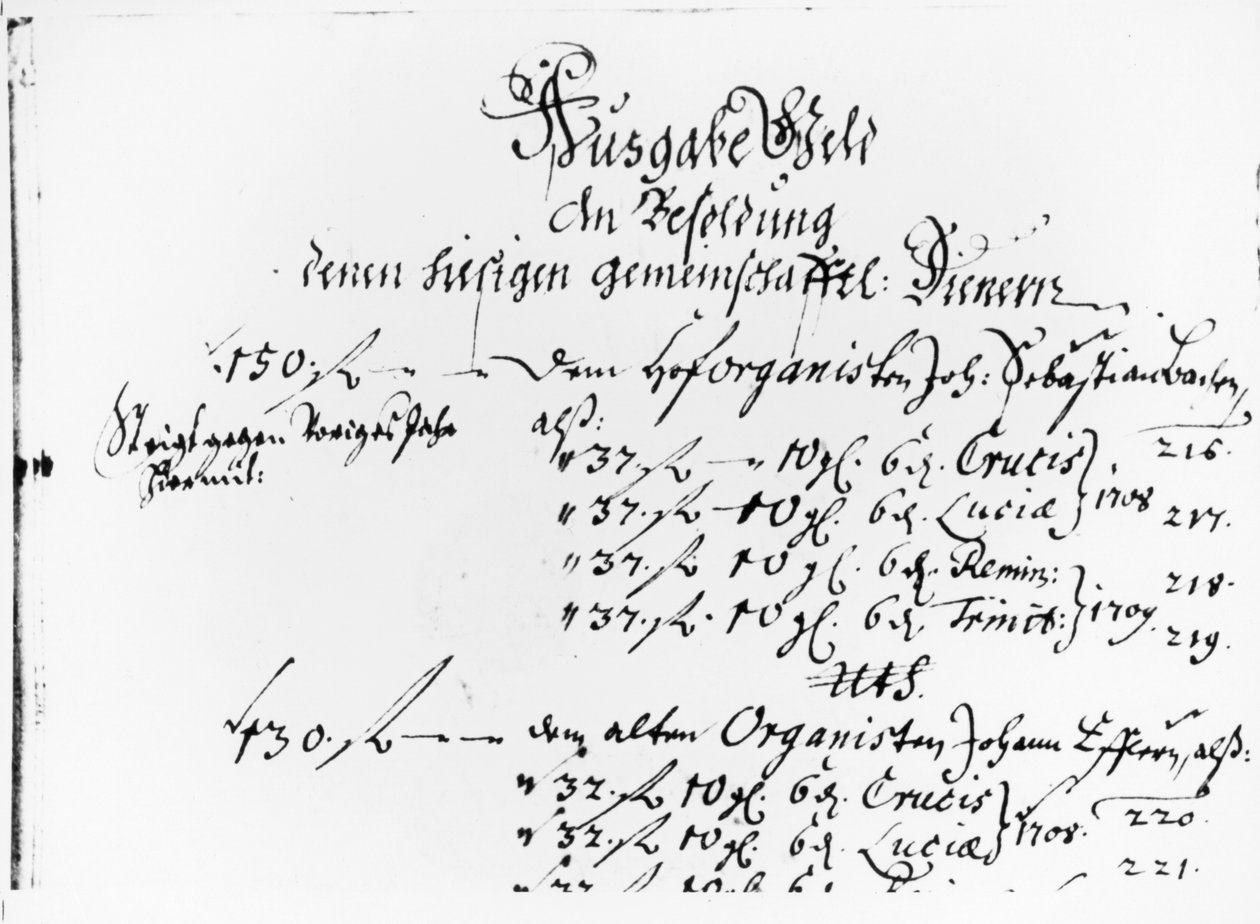 Ausgabe Geld
An Besoldung
denen hiesigen gemeinschafftl: Dienern
150. fl. — — Dem Hoforganisten Joh: Sebastian Bachen,
Steigt gegen voriges Jahr
hiermit:
alß:
" 37. fl. — " 10 gl. 6 d. Crucis } 1708 216.
" 37. fl. — 10 gl. 6 d. Luciæ 217.
" 37. fl. 10 gl. 6 d. Remin: } 1709. 218.
" 37. fl. 10 gl. 6 d. Trinit: 219.
Uts.
130. fl. — — dem alten Organisten Johann Efflern, alß:
" 32. fl. 10 gl. 6 d. Crucis } 1708. 220.
" 32. fl. 10 gl. 6 d. Luciæ 221.